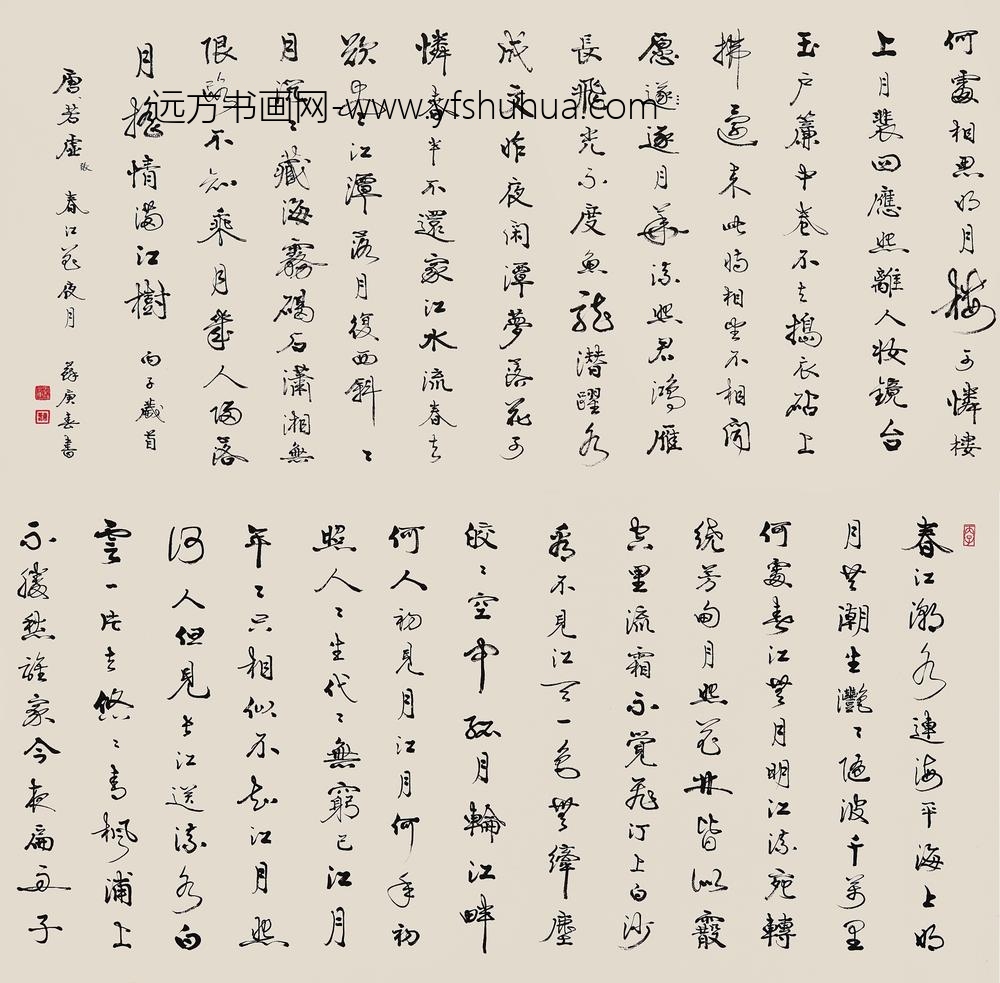 春江潮水連海平海上明
月共潮生灩〻随波千萬里
何處春江無月明江流宛轉
繞芳甸月照花林皆似霰
空里流霜不覺飛汀上白沙
看不見江天一色無纖塵
皎〻空中孤月輪江畔
何人初見月江月何年初
照人〻生代〻無窮已江月
年〻只相似不知江月照
何人但見長江送流水白
雲一片去悠〻青楓浦上
不勝愁誰家今夜扁舟子
何處相思明月樓可憐樓
上月裴回應照離人妝鏡台
玉户簾中卷不去搗衣砧上
拂還来此時相望不相聞
愿遂逐月華流照君鴻雁
長飛光不度魚龍潛躍水
成文昨夜閑潭夢落花可
憐春半不還家江水流春去
欲盡江潭落月復西斜〻
月沉〻藏海霧碣石瀟湘無
限路不知乘月幾人歸落
月搖情滿江樹 丙子歲首
唐若虛張 春江花夜月 蘇庚春書
远方书画网-www.yfshuhua.com